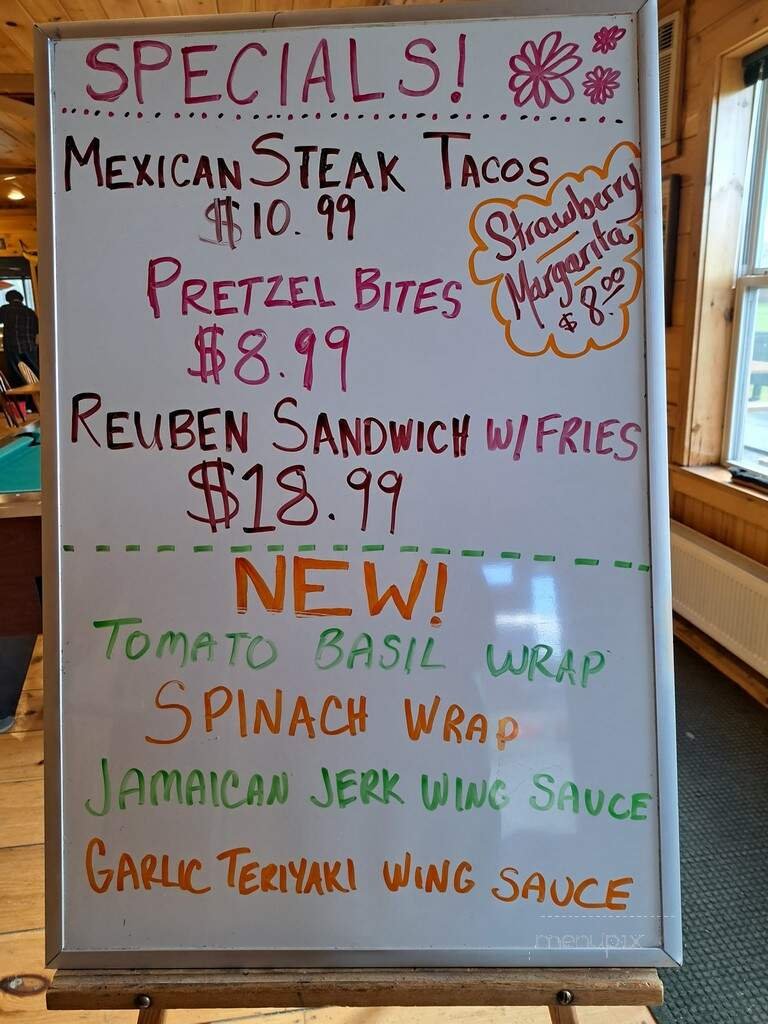 SPECIALS!
MEXICAN STEAK TACOS
$10.99
Strawberry
Margarita
$8.00
PRETZEL BITES
$8.99
REUBEN SANDWICH W/FRIES
$18.99
NEW!
TOMATO BASIL WRAP
SPINACH WRAP
JAMAICAN JERK WING SAUCE
GARLIC TERIYAKI WING SAUCE
menupix